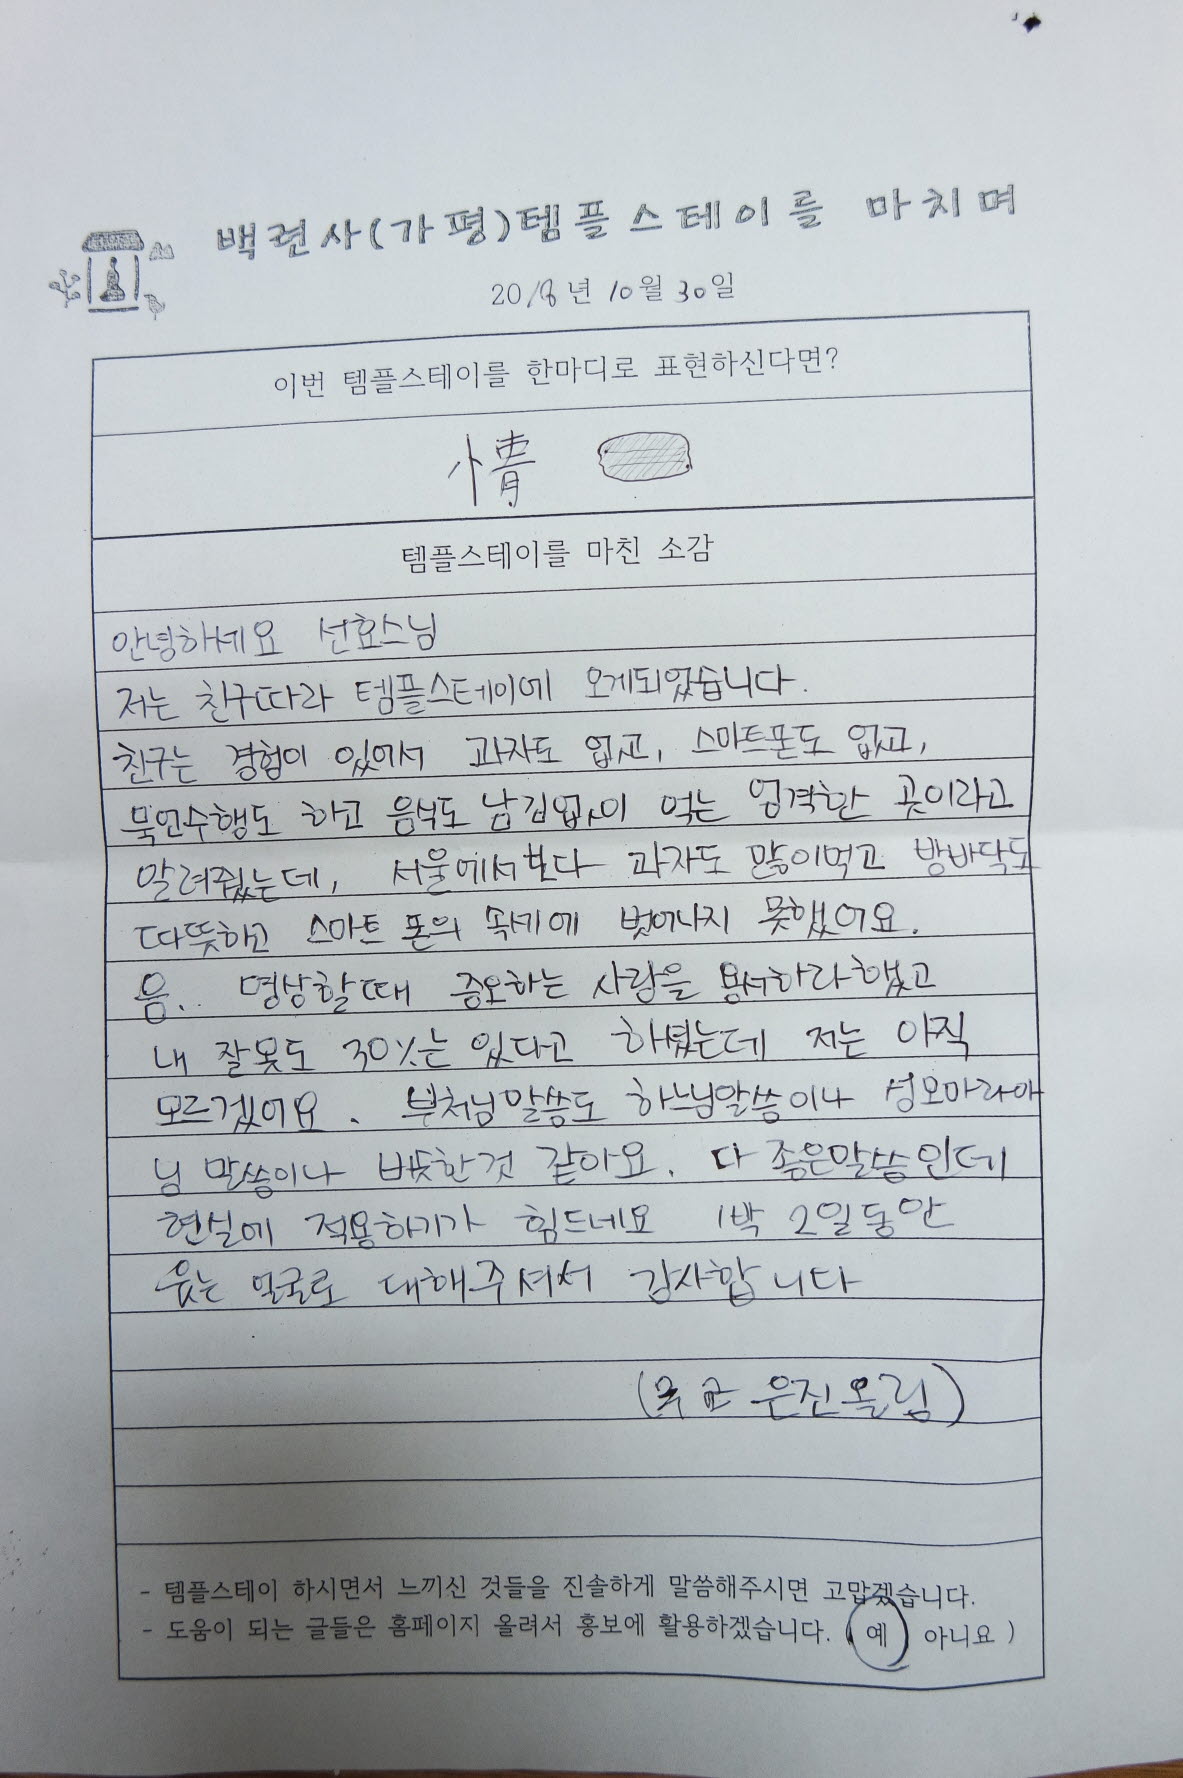 백련사(가평)템플스테이를 마치며
2018년 10월 30일
이번 템플스테이를 한마디로 표현하신다면?
情
템플스테이를 마친 소감
안녕하세요 선효스님
저는 친구따라 템플스테이에 오게되었습니다.
친구는 경험이 있어서 과자도 없고, 스마트폰도 없고,
묵언수행도 하고 음식도 남김없이 먹는 엄격한 곳이라고
알려줬는데, 서울에서보다 과자도 많이먹고 방바닥도
따뜻하고 스마트 폰의 속세에 벗어나지 못했어요.
음.. 명상할때 증오하는 사람을 용서하라했고
내 잘못도 30%는 있다고 하셨는데 저는 아직
모르겠어요. 부처님말씀도 하느님말씀이나 성모마리아
님 말씀이나 비슷한것 같아요. 다 좋은말씀인데
현실에 적용하기가 힘드네요 1박 2일동안
웃는 얼굴로 대해주셔서 감사합니다
은진올림)
- 템플스테이 하시면서 느끼신 것들을 진솔하게 말씀해주시면 고맙겠습니다.
- 도움이 되는 글들은 홈페이지 올려서 홍보에 활용하겠습니다. ( 예 아니요 )